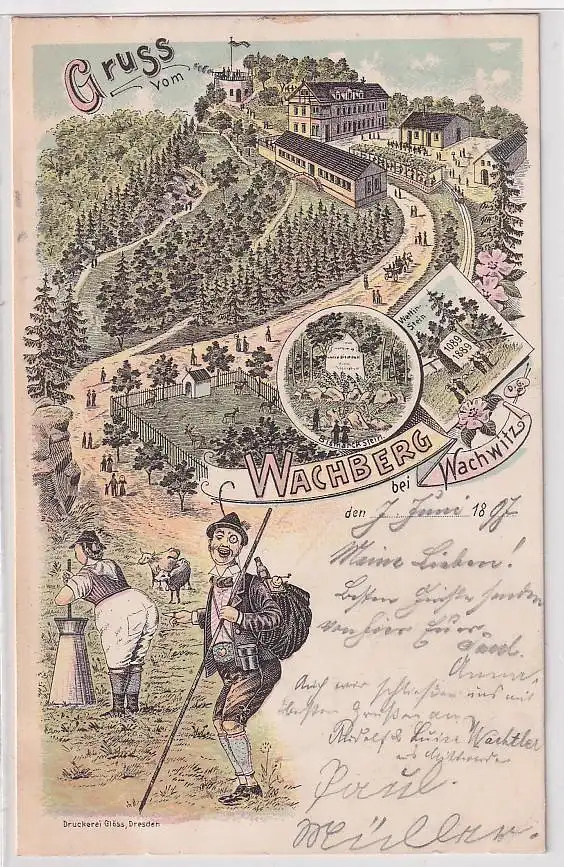 Gruss
vom
Wettin-
Stein
1089
1889
Bismarckstein
WACHBERG
bei Wachwitz
den 7. Juni 1897
Meine Lieben!
Besten Grüße senden
von hier Euer
Paul.
Anna.
Auch wir schließen uns mit
besten Grüßen an
Rudolf & Luise Wachtler
Paul.
Müller.
Druckerei Glöss, Dresden